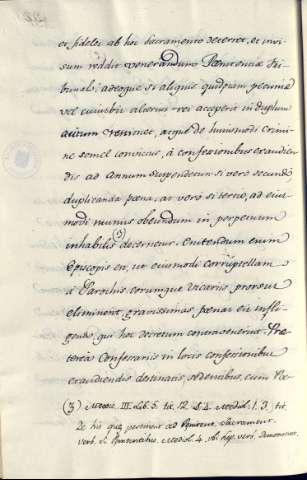 et fideles ab hoc Sacramento deterret, et invi-
sum reddit venerandum Pœnitentiæ Tri-
bunal, adeoque si aliquis quidpiam pecuniæ
vel cuiusvis alterius rei acceperit in duplum
reum teneri, atque de huiusmodi crimi-
ne semel convictus, à confessionibus excipien-
dis ad Annum suspendetur: si vero secundò
duplicanda pœna, at vero si tertio, ad eius-
modi munus obeundum in perpetuum
inhabilis (3) decernetur. Curandum enim
Episcopis est, ut eiusmodi corruptellam
a Parochis eorumque Vicariis, prorsus
eliminent, gravissimas pœnas eis infli-
gendo, qui hoc decretum contravenerint. Præ-
tereà Confessariis in locis confessionibus
excipiendis destinatis sedentibus, cum Pœ-
(3) III. Lib. 5. tit. 12. §. 4. Mediol. 1. 3. tit.
De his quæ pertinent ad Sacramentum
verb. si Mediol. 4.